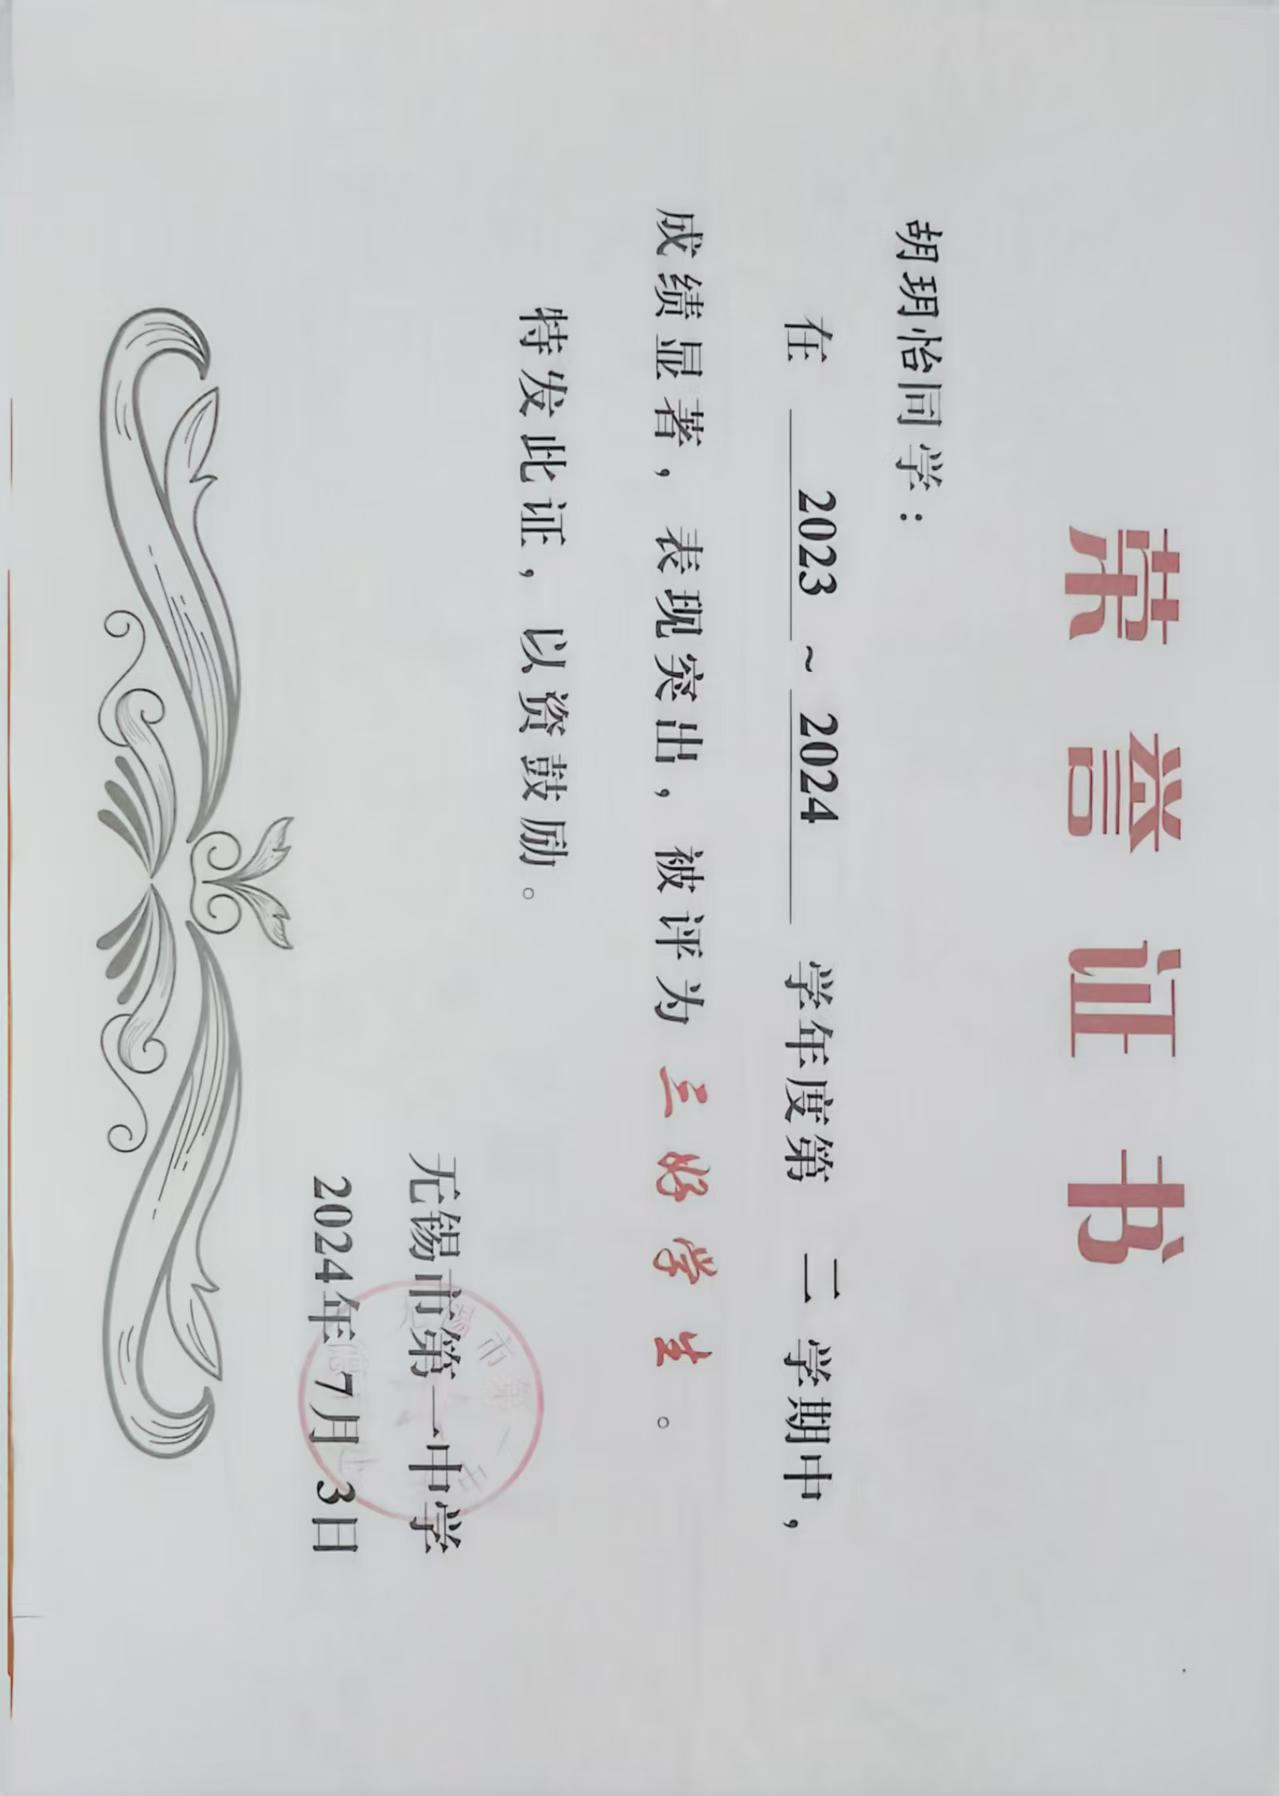 荣誉证书
胡玥怡同学：
在 2023 ~ 2024 学年度第 二 学期中，
成绩显著，表现突出，被评为 三好学生。
特发此证，以资鼓励。
无锡市第一中学
2024年7月3日